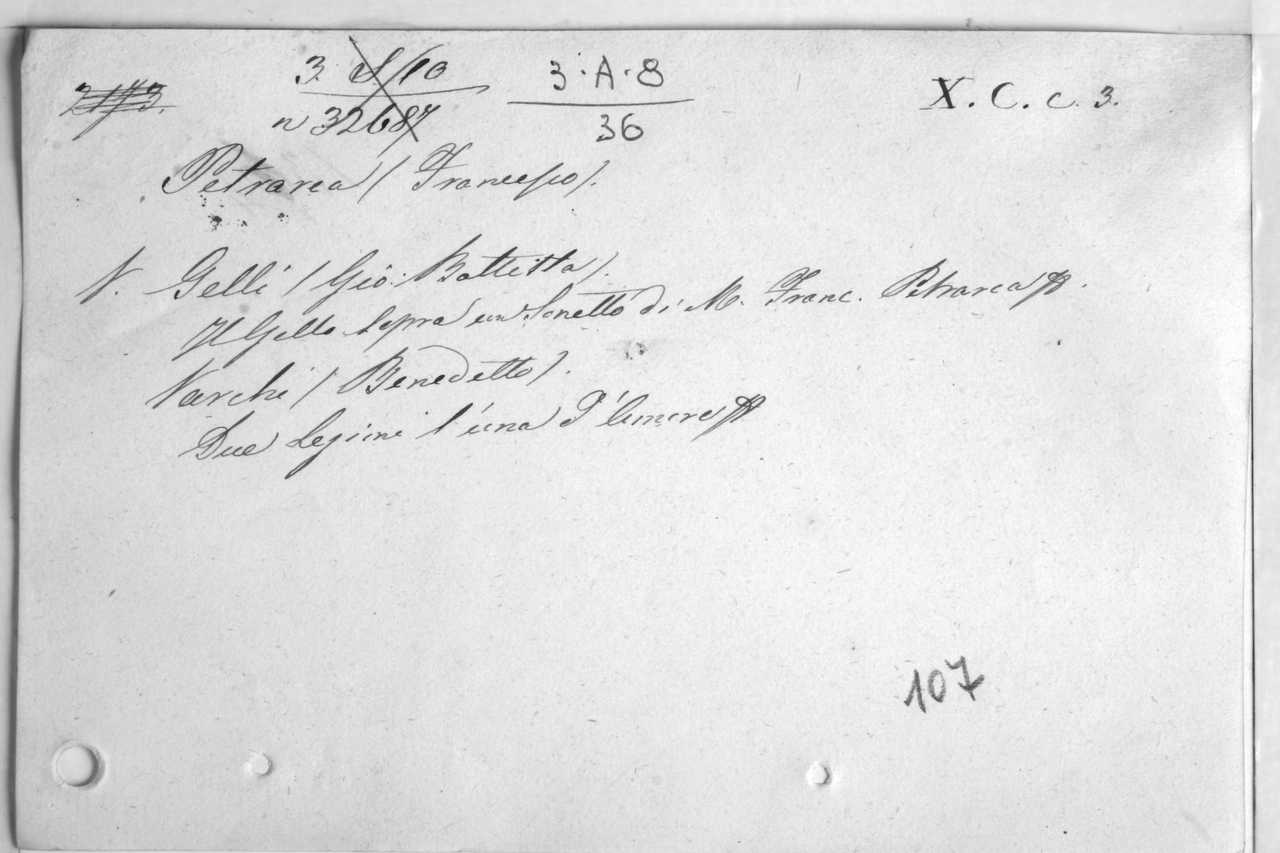 3. S/10 3·A·8 X. C. c. 3.
n 32687 36
Petrarca (Francesco).
V. Gelli (Gio: Battista).
Il Gello sopra un Sonetto di M. Franc. Petrarca
Varchi (Benedetto).
Due Lezioni l'una d'Amore
107